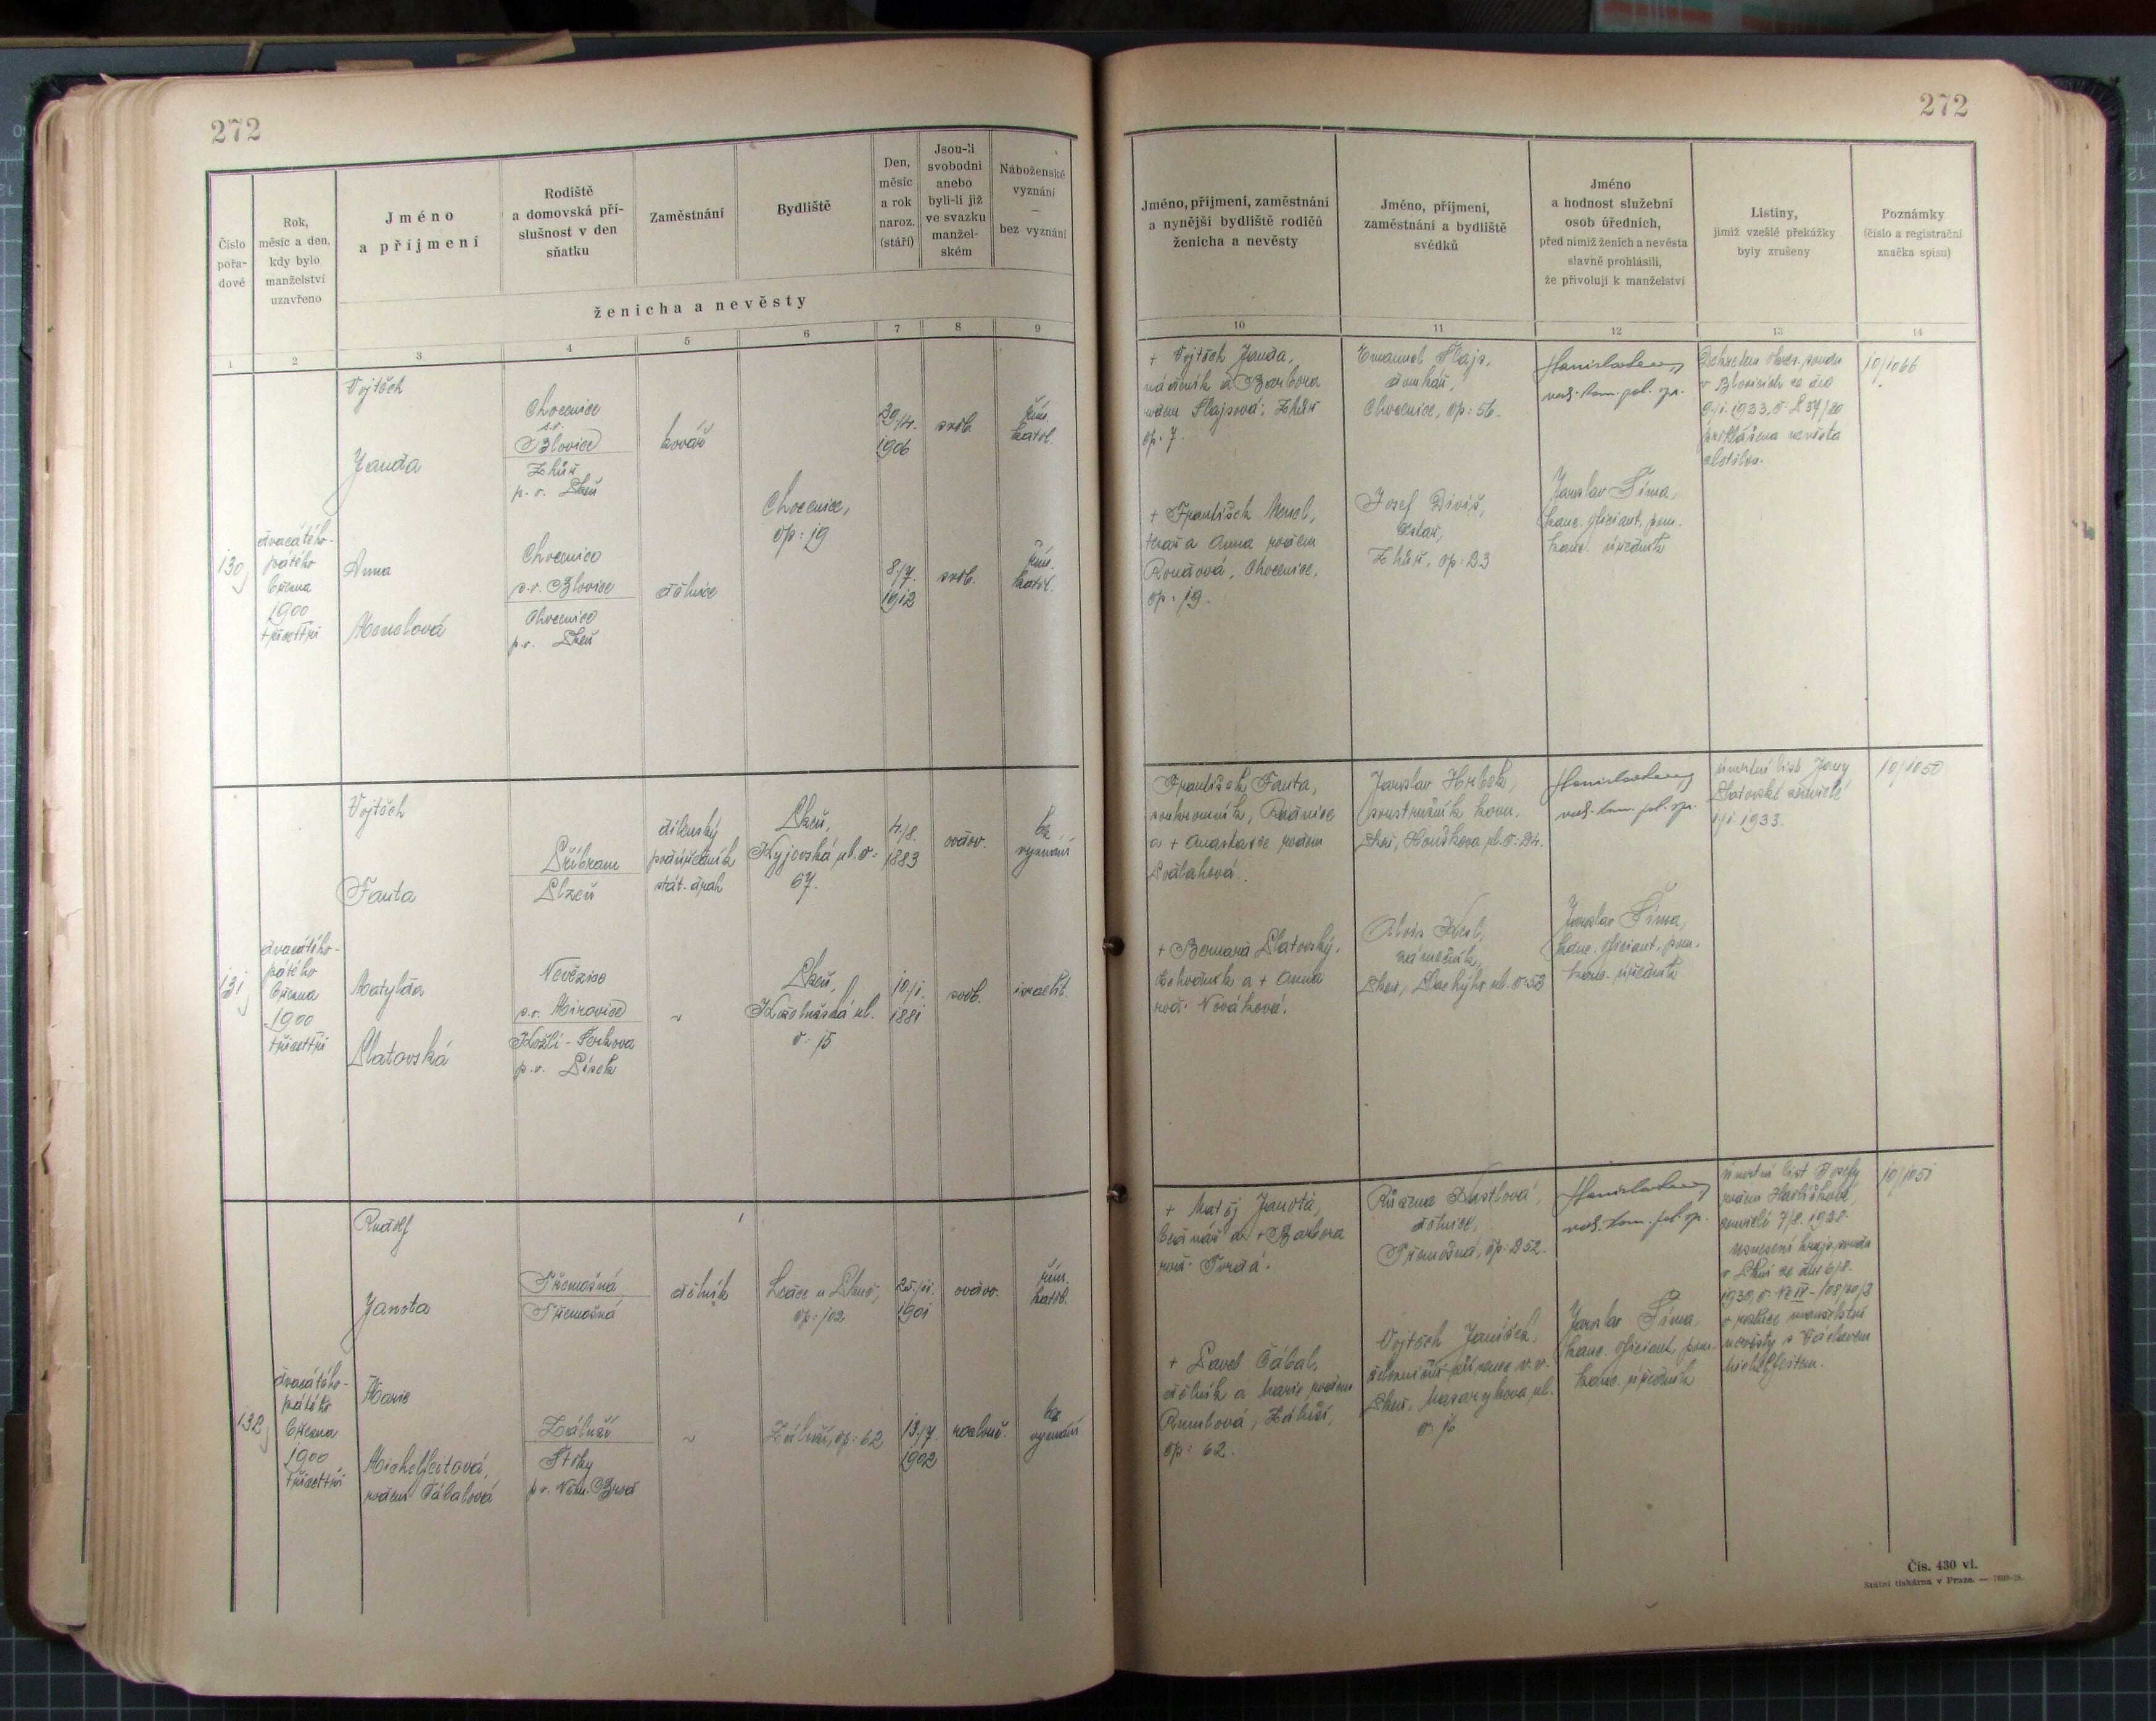 272
Číslo
pořa-
dové
Rok,
měsíc a den,
kdy bylo
manželství
uzavřeno
Jméno
a příjmení
Rodiště
a domovská pří-
slušnost v den
sňatku
Zaměstnání
Bydliště
Den,
měsíc
a rok
naroz.
(stáří)
Jsou-li
svobodni
anebo
byli-li již
ve svazku
manžel-
ském
Náboženské
vyznání
—
bez vyznání
ženicha a nevěsty
1 2 3 4 5 6 7 8 9
130
dvacátého-
pátého
března
1900
třicettři
Vojtěch
Janda
Chocenice
s.o.
Blovice
Zhůř
p. o. Plzeň
kovář
1906
svob.
řím.
katol.
Chocenice,
čp: 19
Anna
Menclová
Chocenice
s.o. Blovice
Chocenice
p.o. Plzeň
dělnice
8/7.
1912
svob.
řím.
katol.
131
dvacátého-
pátého
března
1900
třicettři
Vojtěch
Fanta
Příbram
Plzeň
dílenský
podúředník
stát. drah
Plzeň,
Kyjovská ul. č:
67.
4./8.
1883
ovdov.
bez
vyznání
Matylda
Platovská
Nevězice
s.o. Mirovice
p.o. Písek
~
Plzeň,
ul.
č: 15
10./1.
1881
svob.
israelit.
132
dvacátého-
pátého
března
1900
třicettři
Rudolf
Janota
Třemošná
Třemošná
dělník
čp: 102
1901
ovdov.
řím.
katol.
Marie
Michelfeitová,
rodem Čábalová
Záluží
Štoky
p.o. Něm. Brod
~
Záluží, čp: 62
13./7.
1902
rozlouč.
bez
vyznání
272
Jméno, příjmení, zaměstnání
a nynější bydliště rodičů
ženicha a nevěsty
Jméno, příjmení,
zaměstnání a bydliště
svědků
Jméno
a hodnost služební
osob úředních,
před nimiž ženich a nevěsta
slavně prohlásili,
že přivolují k manželství
Listiny,
jimiž vzešlé překážky
byly zrušeny
Poznámky
(číslo a registrační
značka spisu)
10 11 12 13 14
+ Vojtěch Janda,
nádeník a Barbora
rodem Flajsová, Zhůř
čp: 7.
+ František Mencl,
tesař a Anna rodem
Chocenice,
čp: 19.
Emanuel Flajs,
domkář,
Chocenice, čp: 56.
Josef Diviš,
cestář,
Zhůř, čp: 23
rad. kom. pol. spr.
Jaroslav Šíma,
kanc. oficiant, pom.
kanc. úředník
Dekretem okres. soudu
v Blovicích ze dne
9./1. 1933, č: L 37/20
prohlášena nevěsta
zletilou.
10/1066
František Fanta,
soukromník,
a + Anastazie rodem
+ Bernard Platovský,
obchodník a + Anna
rod. Nováková.
Jaroslav Hrbek,
soustružník kovu,
Plzeň, Houškova ul. č: 24.
Alois
zámečník,
Plzeň, Palackého ul. č: 52
rad. kom. pol. spr.
Jaroslav Šíma,
kanc. oficiant, pom.
kanc. úředník
úmrtní list Jany
zemřelé
1./1. 1933.
10/1050
+ Matěj Janota,
bednář a + Barbora
rod. Tvrdá.
+ Pavel Čábal,
dělník a Marie rodem
Rumlová, Záluží,
čp: 62.
Růžena
dělnice,
Třemošná, čp: 252.
Vojtěch Janíček,
železniční zřízenec v.v.
Plzeň, Masarykova ul.
rad. kom. pol. spr.
Jaroslav Šíma,
kanc. oficiant, pom.
kanc. úředník
úmrtní list Josefy
rodem
zemřelé 7/8. 1928.
usnesení krajs. soudu
v Plzni ze dne 6/8.
o rozluce manželství
nevěsty s Václavem
Michelfeitem.
10/1051
Čís. 430 vl.
Státní tiskárna v Praze. — 7610-28.